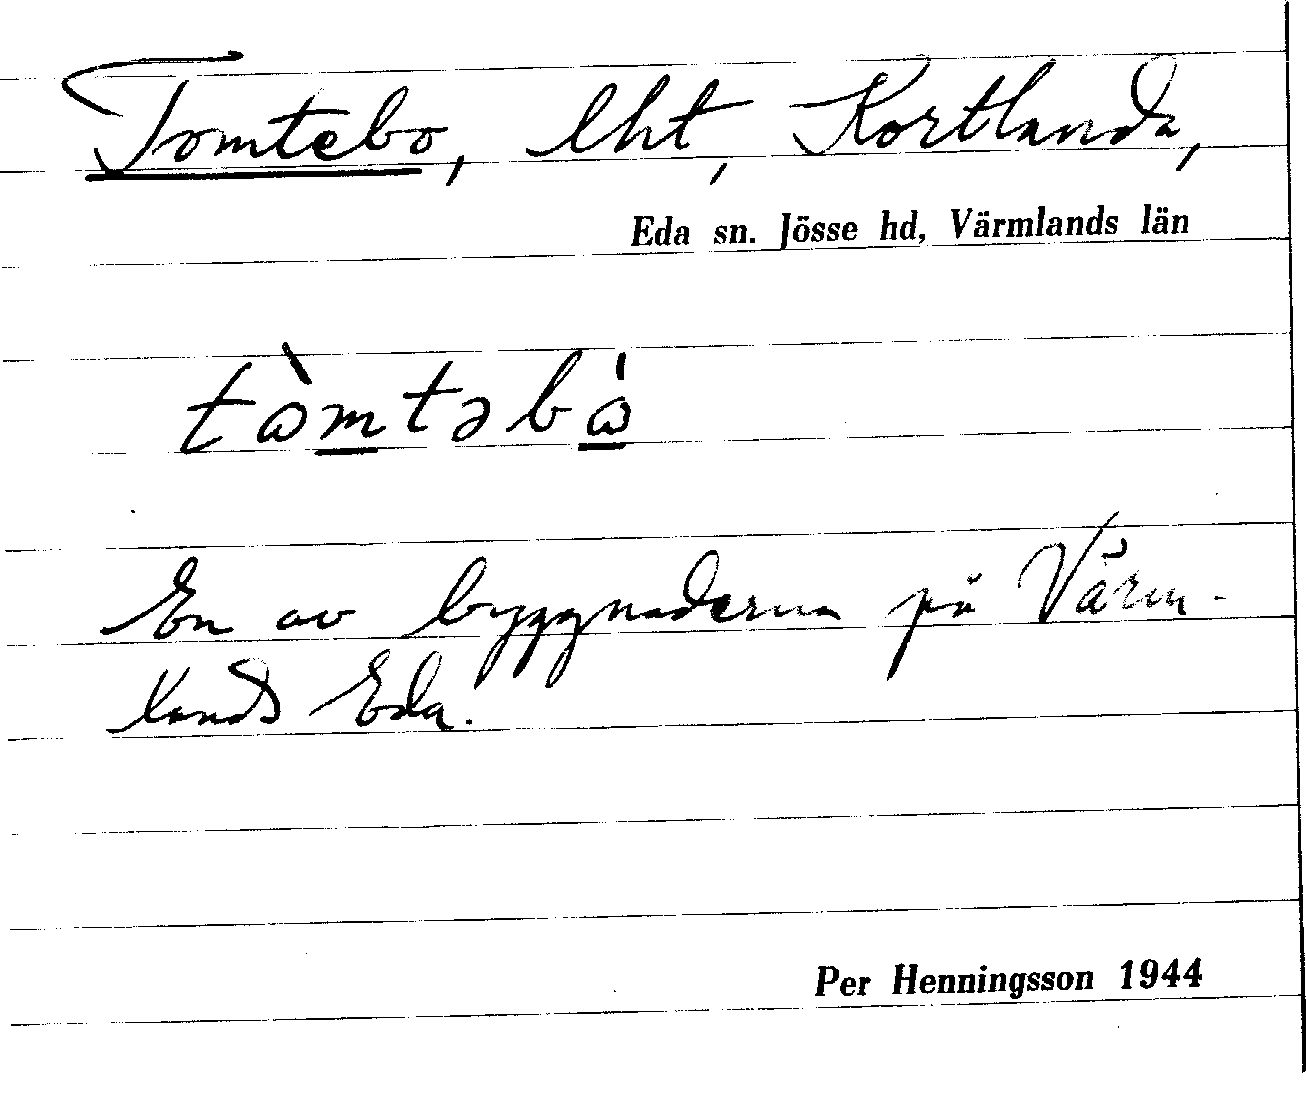 Tomtebo, lht, Kortlanda,
Eda sn. Jösse hd, Värmlands län
tɷ̀mtəbɷ́
En av byggnaderna på Värm-
lands Eda.
Per Henningsson 1944